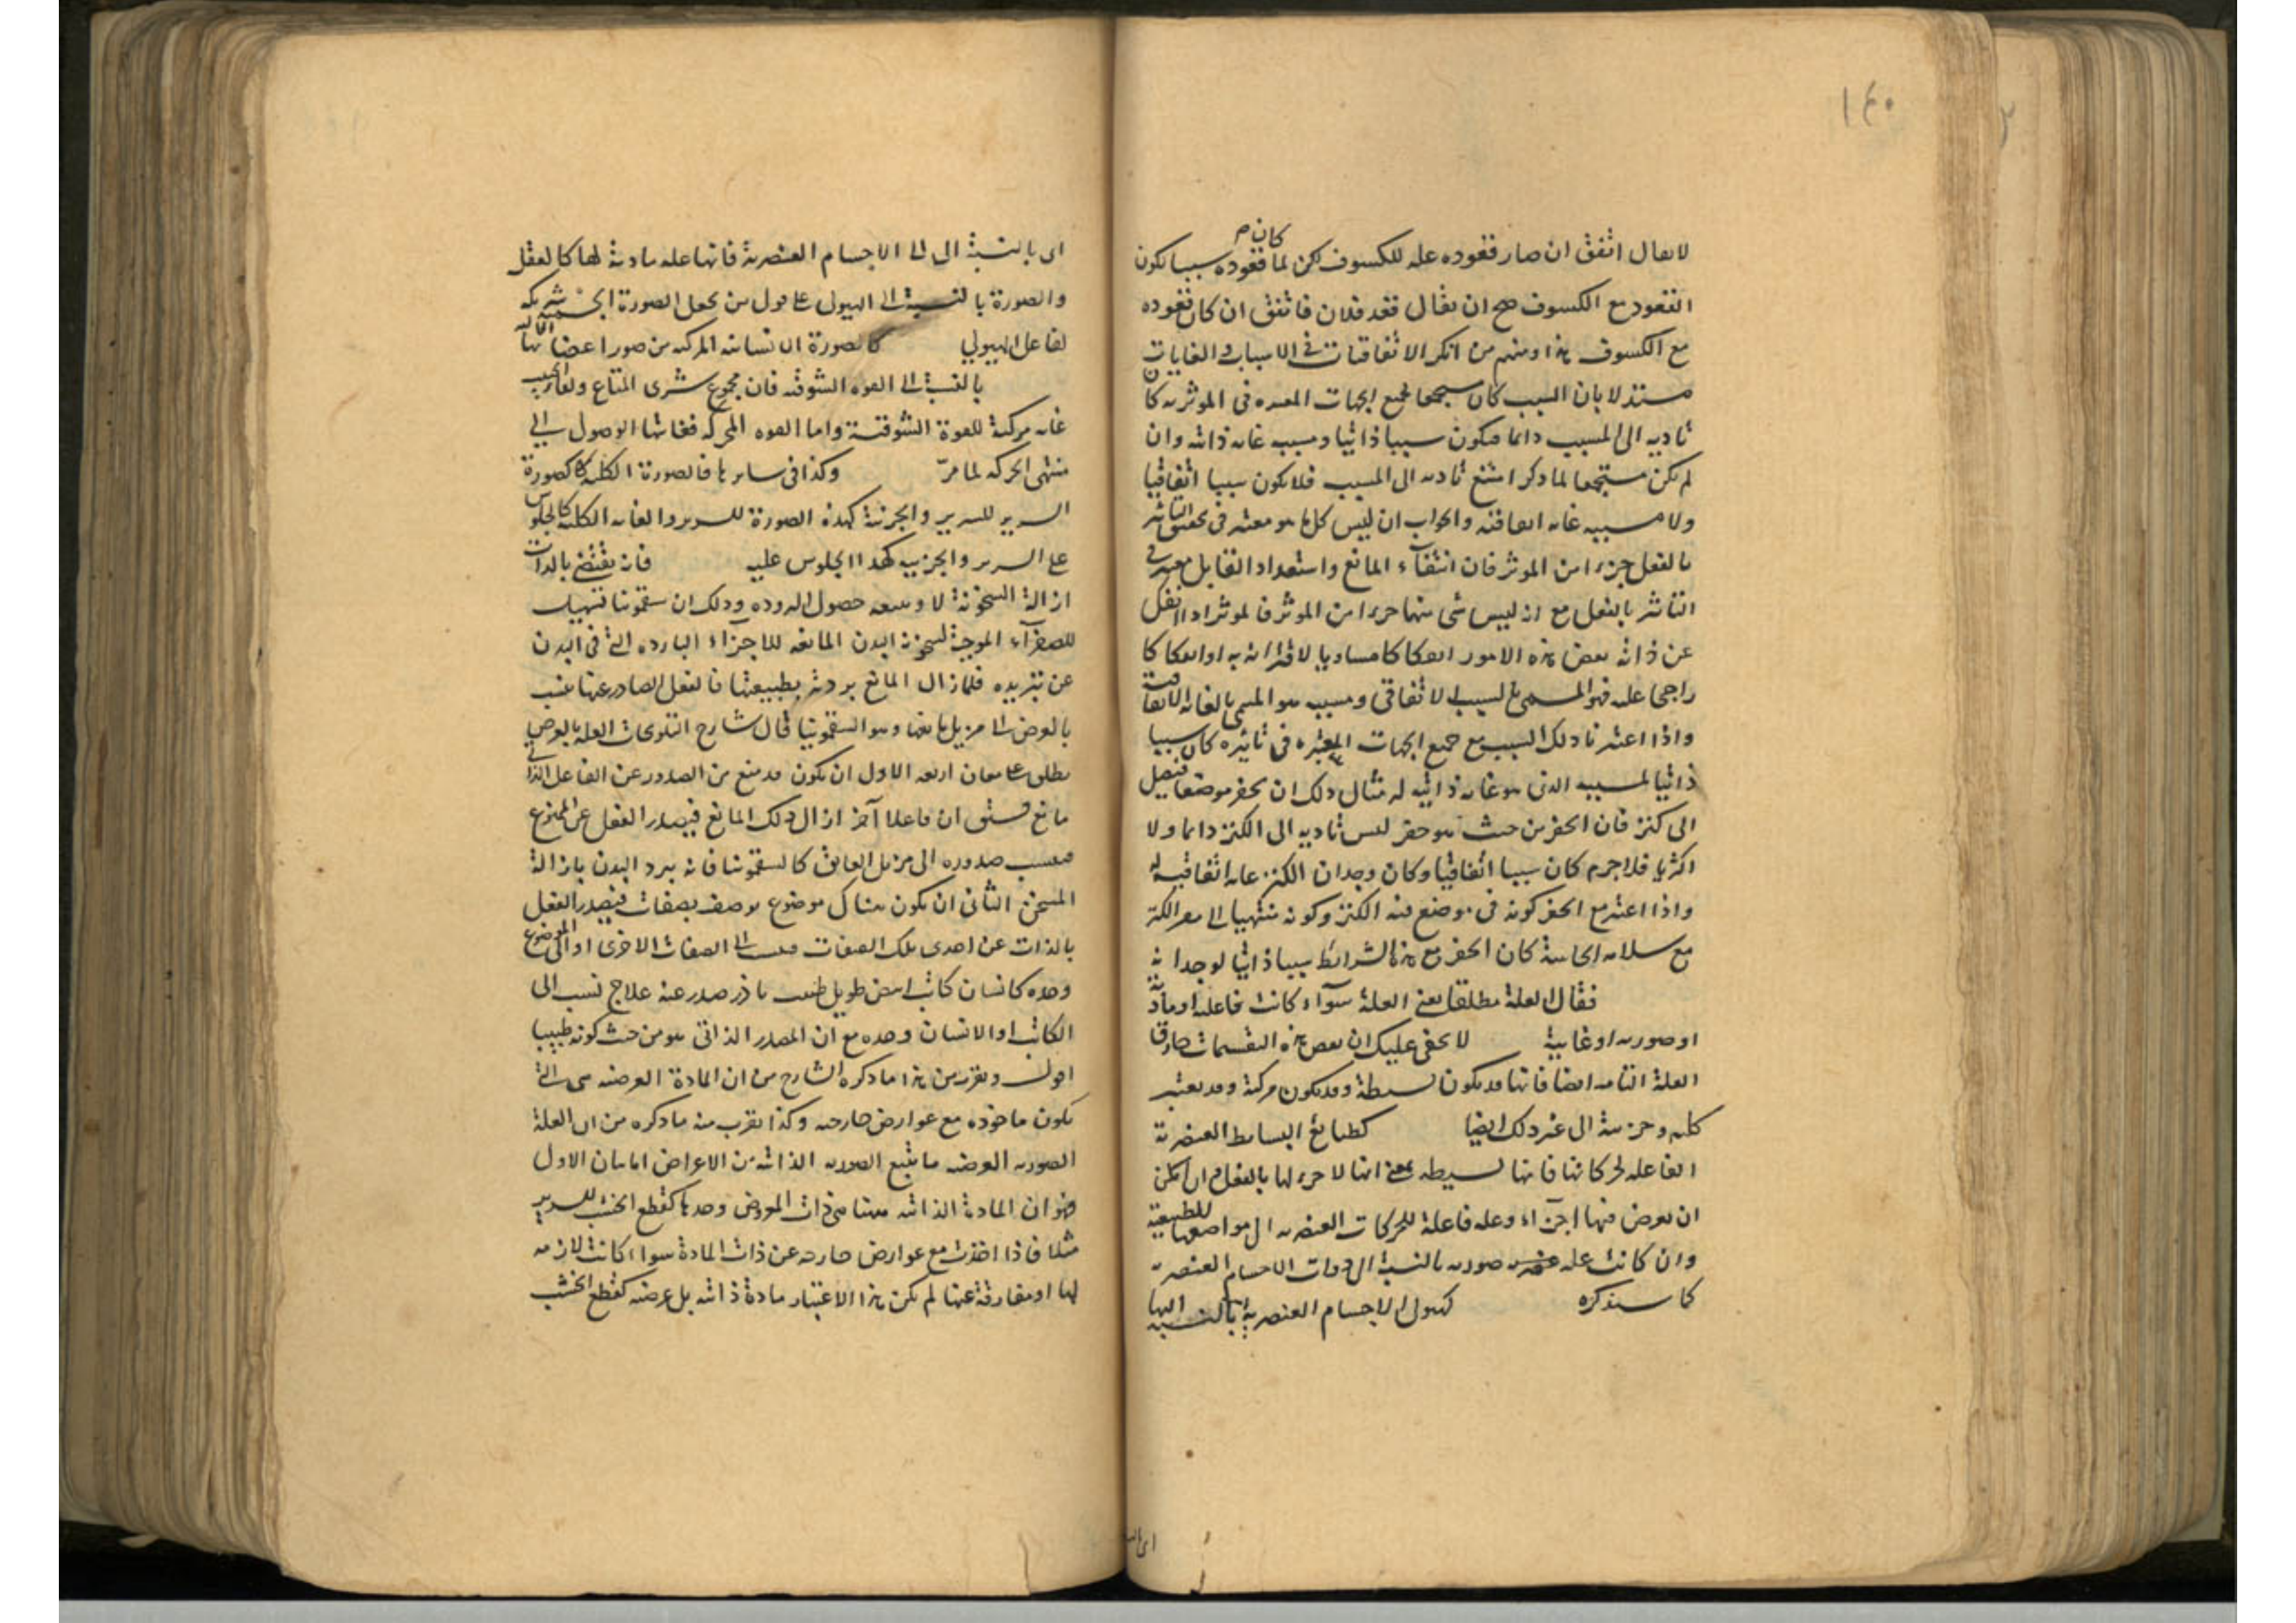 ١٤٠
لا يقال اتفق ان صار قعوده علة للكسوف لكن لما كان قعوده سببا يكون
القعود مع الكسوف صح ان يقال قعد فلان فاتفق ان كان قعوده
مع الكسوف هذا ومنهم من انكر الاتفاقيات فى الاسباب والغايات
مستدلا بان السبب كان مستجمعا لجميع الجهات المعتبرة فى المؤثرية كان
تاديه الى المسبب دائما فيكون سببا ذاتيا ومسببه غاية ذاتية وان
لم يكن مستجمعا لما ذكر امتنع تاديه الى المسبب فلا يكون سببا اتفاقيا
ولا مسببه غاية اتفاقية والجواب ان ليس كل ما هو معتبر فى تحقق التاثير
بالفعل جزءا من الموثر فان انتفآء المانع واستعداد القابل معتبر فى
التاثير بالفعل مع انه ليس شى منهما جزءا من الموثر فالموثر اذا انفك
عن ذاته بعض هذه الامور انفكاكا مساويا لاقترانه به او انفكاكا
راجحا عليه فهو المسمى بالسبب الاتفاقى ومسببه هو المسمى بالغاية الاتفاقية
واذا اعتبرنا ذلك السبب مع جميع الجهات المعتبرة فى تاثيره كان سببا
ذاتيا لمسببه الذى هو غاية ذاتية له مثال ذلك ان يحفر موضعا فيصل
الى كنز فان الحفر من حيث هو حفر ليس تاديه الى الكنز دائما ولا
اكثريا فلا جرم كان سببا اتفاقيا وكان وجدان الكنز غاية اتفاقية له
واذا اعتبر مع الحفر كونه فى موضع فيه الكنز وكونه منتهيا الى الكنز
مع سلامة الحاسة كان الحفر مع هذه الشرائط سببا ذاتيا لوجدانه
فقال العلة مطلقا يعنى العلة سوآء كانت فاعلية او مادية
او صورية او غايية لا يخفى عليك ان بعض هذه التقسيمات صادق
العلة التامة ايضا فانها قد يكون بسيطة وقد يكون مركبة وقد يعتبر
كلية وجزئية الى غير ذلك ايضا كطبائع البسائط العنصرية
الفاعلة لحركاتها فانها بسيطة بمعنى انها لا جزء لها بالفعل وان امكن
ان يعرض فيها اجزآء وعلة فاعلة للحركات العنصرية الى مواضعها الطبيعية
وان كانت علة صورية بالنسبة الى ذوات الاجسام العنصرية
كما سنذكره كهيولى الاجسام العنصرية بالنسبة اليها
اى بالنسبة الى الاجسام العنصرية فانها علة مادية لها كالعقل
والصورة بالنسبة الى الهيولى على قول من يجعل الصورة الجسمية شريكة
لفاعل الهيولي كالصورة الانسانية المركبة من صور اعضائها الالية
بالنسبة الى القوة الشوقية فان مجموع شرى المتاع ولقاء الحبيب
غاية مركبة للقوة الشوقية واما القوة المحركة فغايتها الوصول الى
منتهى الحركة لما مرّ وكذا فى سايرها فالصورة الكلية كصورة
السرير للسرير والجزئية كهذه الصورة للسرير والغاية الكلية كالجلوس
على السرير والجزئية كهذا الجلوس عليه فانه يقتضى بالذات
ازالة السخونة لا ويتبعه حصول البرودة وذلك ان سقمونيا
للصفرآء الموجبة لسخونة البدن المانعة للاجزاء الباردة التى فى البدن
عن تبريده فلما زال المانع بردته بطبيعتها فالفعل الصادر عنها ينسب
بالعرض الى مزيل مانعها وهو السقمونيا قال شارح التلويحات العلة بالعرض
يطلق على معان اربعة الاول ان يكون قد منع من الصدور عن الفاعل
مانع ان فاعلا آخر ازال ذلك المانع فيصدر الفعل عن الممنوع
صدوره الى مزيل العايق كالسقمونيا فانه يبرد البدن بازالة
المسخن الثانى ان يكون هناك موضوع يوصف بصفات فيصدر الفعل
بالذات عن احدى تلك الصفات فينسب الى الصفات الاخرى او الى الموضوع
وحده كانسان كاتب ابيض طويل طبيب صدر عنه علاج نسب الى
الكاتب او الانسان وحده مع ان المصدر الذاتى هو من حيث كونه طبيبا
اقول ويقرب من هذا ما ذكره الشارح من ان المادة العرضية هى التى
يكون ماخوذة مع عوارض خارجية وكذا يقرب منه ما ذكره من ان العلة
الصورية العرضية ما يتبع الصورية الذاتية من الاعراض اما بيان الاول
فهو ان المادة الذاتية هى ذات المعروض وحدها كقطع الخشب للسرير
مثلا فاذا اخذت مع عوارض خارجة عن ذات المادة سواء كانت لازمة
لها او مفارقة عنها لم يكن بهذا الاعتبار مادة ذاتية بل عرضية كقطع الخشب